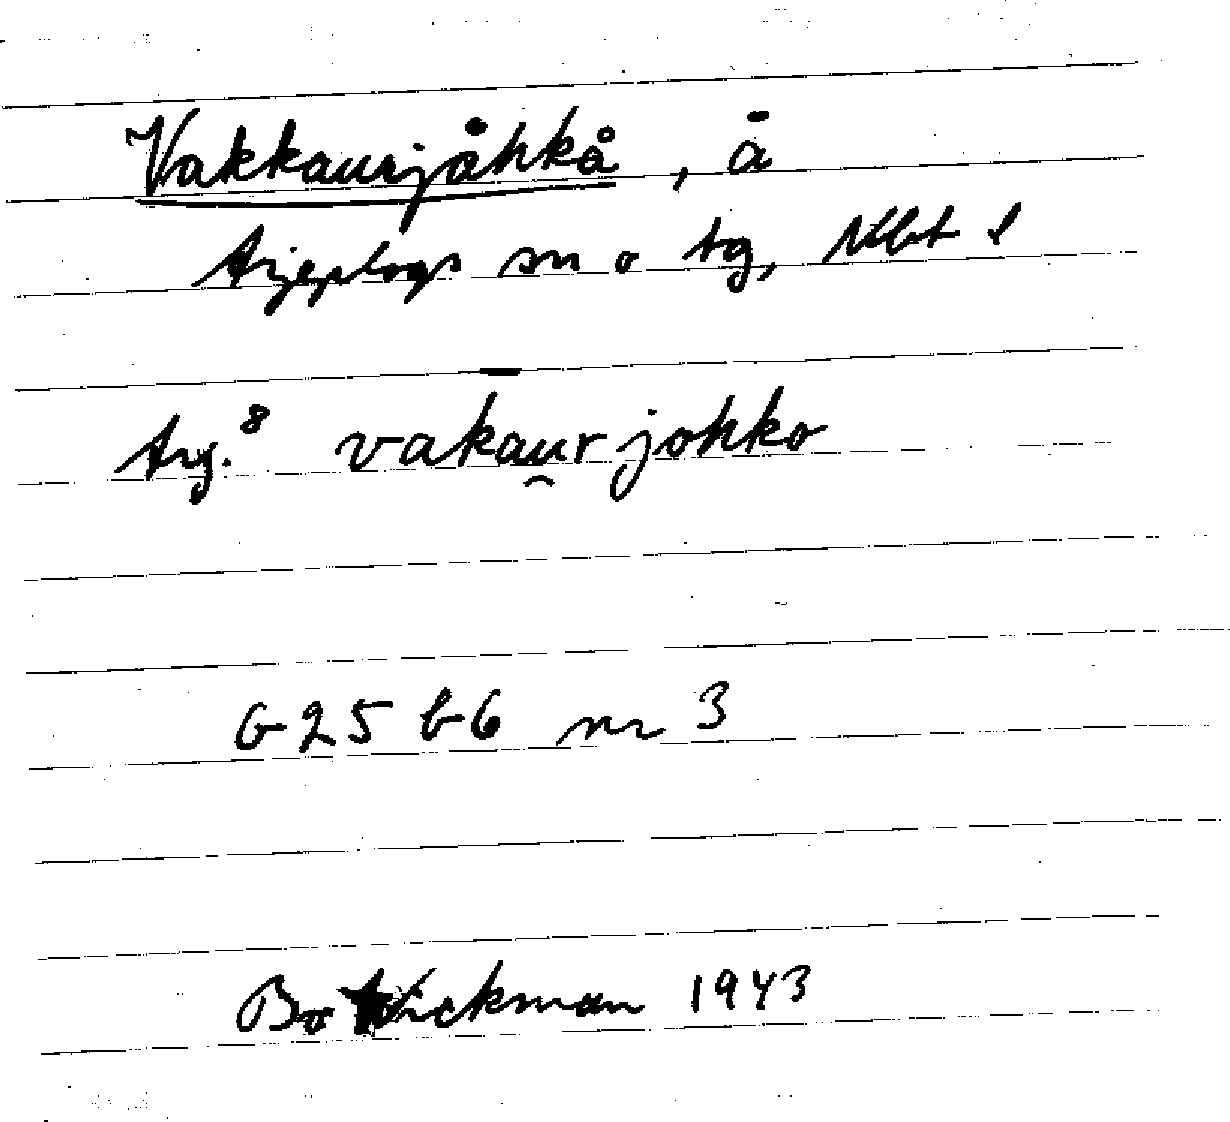 Vakkaurjåhkå, å
Arjeplogs sn o tg, Nbt l
Arj.8 vakau̯rjohko
G25 b6 nr 3
Bo Wickman 1943